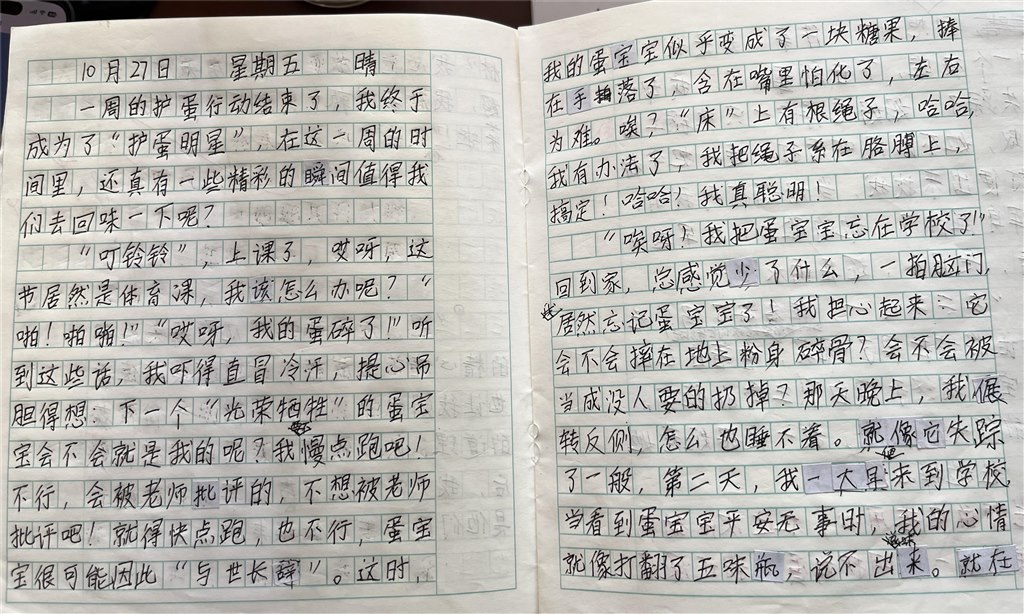 10月27日 星期五 晴
一周的护蛋行动结束了，我终于
成为了“护蛋明星”，在这一周的时
间里，还真有一些精彩的瞬间值得我
们去回味一下呢？
“叮铃铃”，上课了，哎呀，这
节居然是体育课，我该怎么办呢？“
啪！啪啪！”“哎呀，我的蛋碎了！”听
到这些话，我吓得直冒冷汗，提心吊
胆得想：下一个“光荣牺牲”的蛋宝
宝会不会就是我的呢？我慢点跑吧！
不行，会被老师批评的，不想被老师
批评吧！就得快点跑，也不行，蛋宝
宝很可能因此“与世长辞”。这时，
我的蛋宝宝似乎变成了一块糖果，捧
在手拍落了，含在嘴里怕化了，左右
为难。唉？“床”上有根绳子，哈哈，
我有办法了，我把绳子系在胳膊上，
搞定！哈哈！我真聪明！
“唉呀！我把蛋宝宝忘在学校了！”
回到家，总感觉少了什么，一拍脑门，
居然忘记蛋宝宝了！我担心起来：它
会不会摔在地上粉身碎骨？会不会被
当成没人要的扔掉？那天晚上，我辗
转反侧，怎么也睡不着。就像它失踪
了一般，第二天，我一大早来到学校，
当看到蛋宝宝平安无事时，我的心情
就像打翻了五味瓶，说不出来。就在